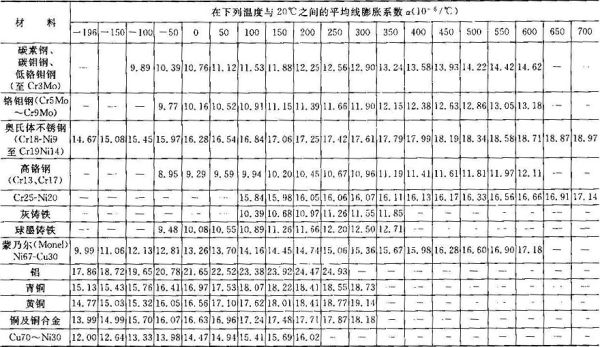 材 料
在下列温度与20℃之间的平均线膨胀系数α(10⁻⁶/℃)
−196 −150 −100 −50 0 50 100 150 200 250 300 350 400 450 500 550 600 650 700
碳素钢、
碳钼钢、
低铬钼钢
(至Cr3Mo)
— — 9.89 10.39 10.76 11.12 11.53 11.88 12.25 12.56 12.90 13.24 13.58 13.93 14.22 14.42 14.62 — —
铬钼钢(Cr5Mo
～Cr9Mo)
— — — 9.77 10.16 10.52 10.91 11.15 11.39 11.66 11.90 12.15 12.38 12.63 12.86 13.05 13.18 — —
奥氏体不锈钢
(Cr18-Ni9
至Cr19Ni14)
14.67 15.08 15.45 15.97 16.28 16.54 16.84 17.06 17.25 17.42 17.61 17.79 17.99 18.19 18.34 18.58 18.71 18.87 18.97
高铬钢
(Cr13、Cr17)
— — — 8.95 9.29 9.59 9.94 10.20 10.45 10.67 10.96 11.19 11.41 11.61 11.81 11.97 12.11 — —
Cr25-Ni20 15.84 15.98 16.05 16.06 16.07 16.11 16.13 16.17 16.33 16.56 16.66 16.91 17.14
灰铸铁 10.39 10.68 10.97 11.26 11.55 11.85
球墨铸铁 9.48 10.08 10.55 10.89 11.26 11.66 12.20 12.50 12.71
蒙乃尔(Monel)
Ni67-Cu30
9.99 11.06 12.13 12.81 13.26 13.70 14.16 14.45 14.74 15.06 15.36 15.67 15.98 16.28 16.60 16.90 17.18 — —
铝 17.86 18.72 19.65 20.78 21.65 22.52 23.38 23.92 24.47 24.93
青铜 15.13 15.43 15.76 16.41 16.97 17.53 18.07 18.22 18.41 18.55 18.73
黄铜 14.77 15.03 15.32 16.05 16.56 17.10 17.62 18.01 18.41 18.77 19.14
铜及铜合金 13.99 14.99 15.70 16.07 16.63 16.96 17.24 17.48 17.71 17.87 18.18
Cu70～Ni30 12.00 12.64 13.33 13.98 14.47 14.94 15.41 15.69 16.02